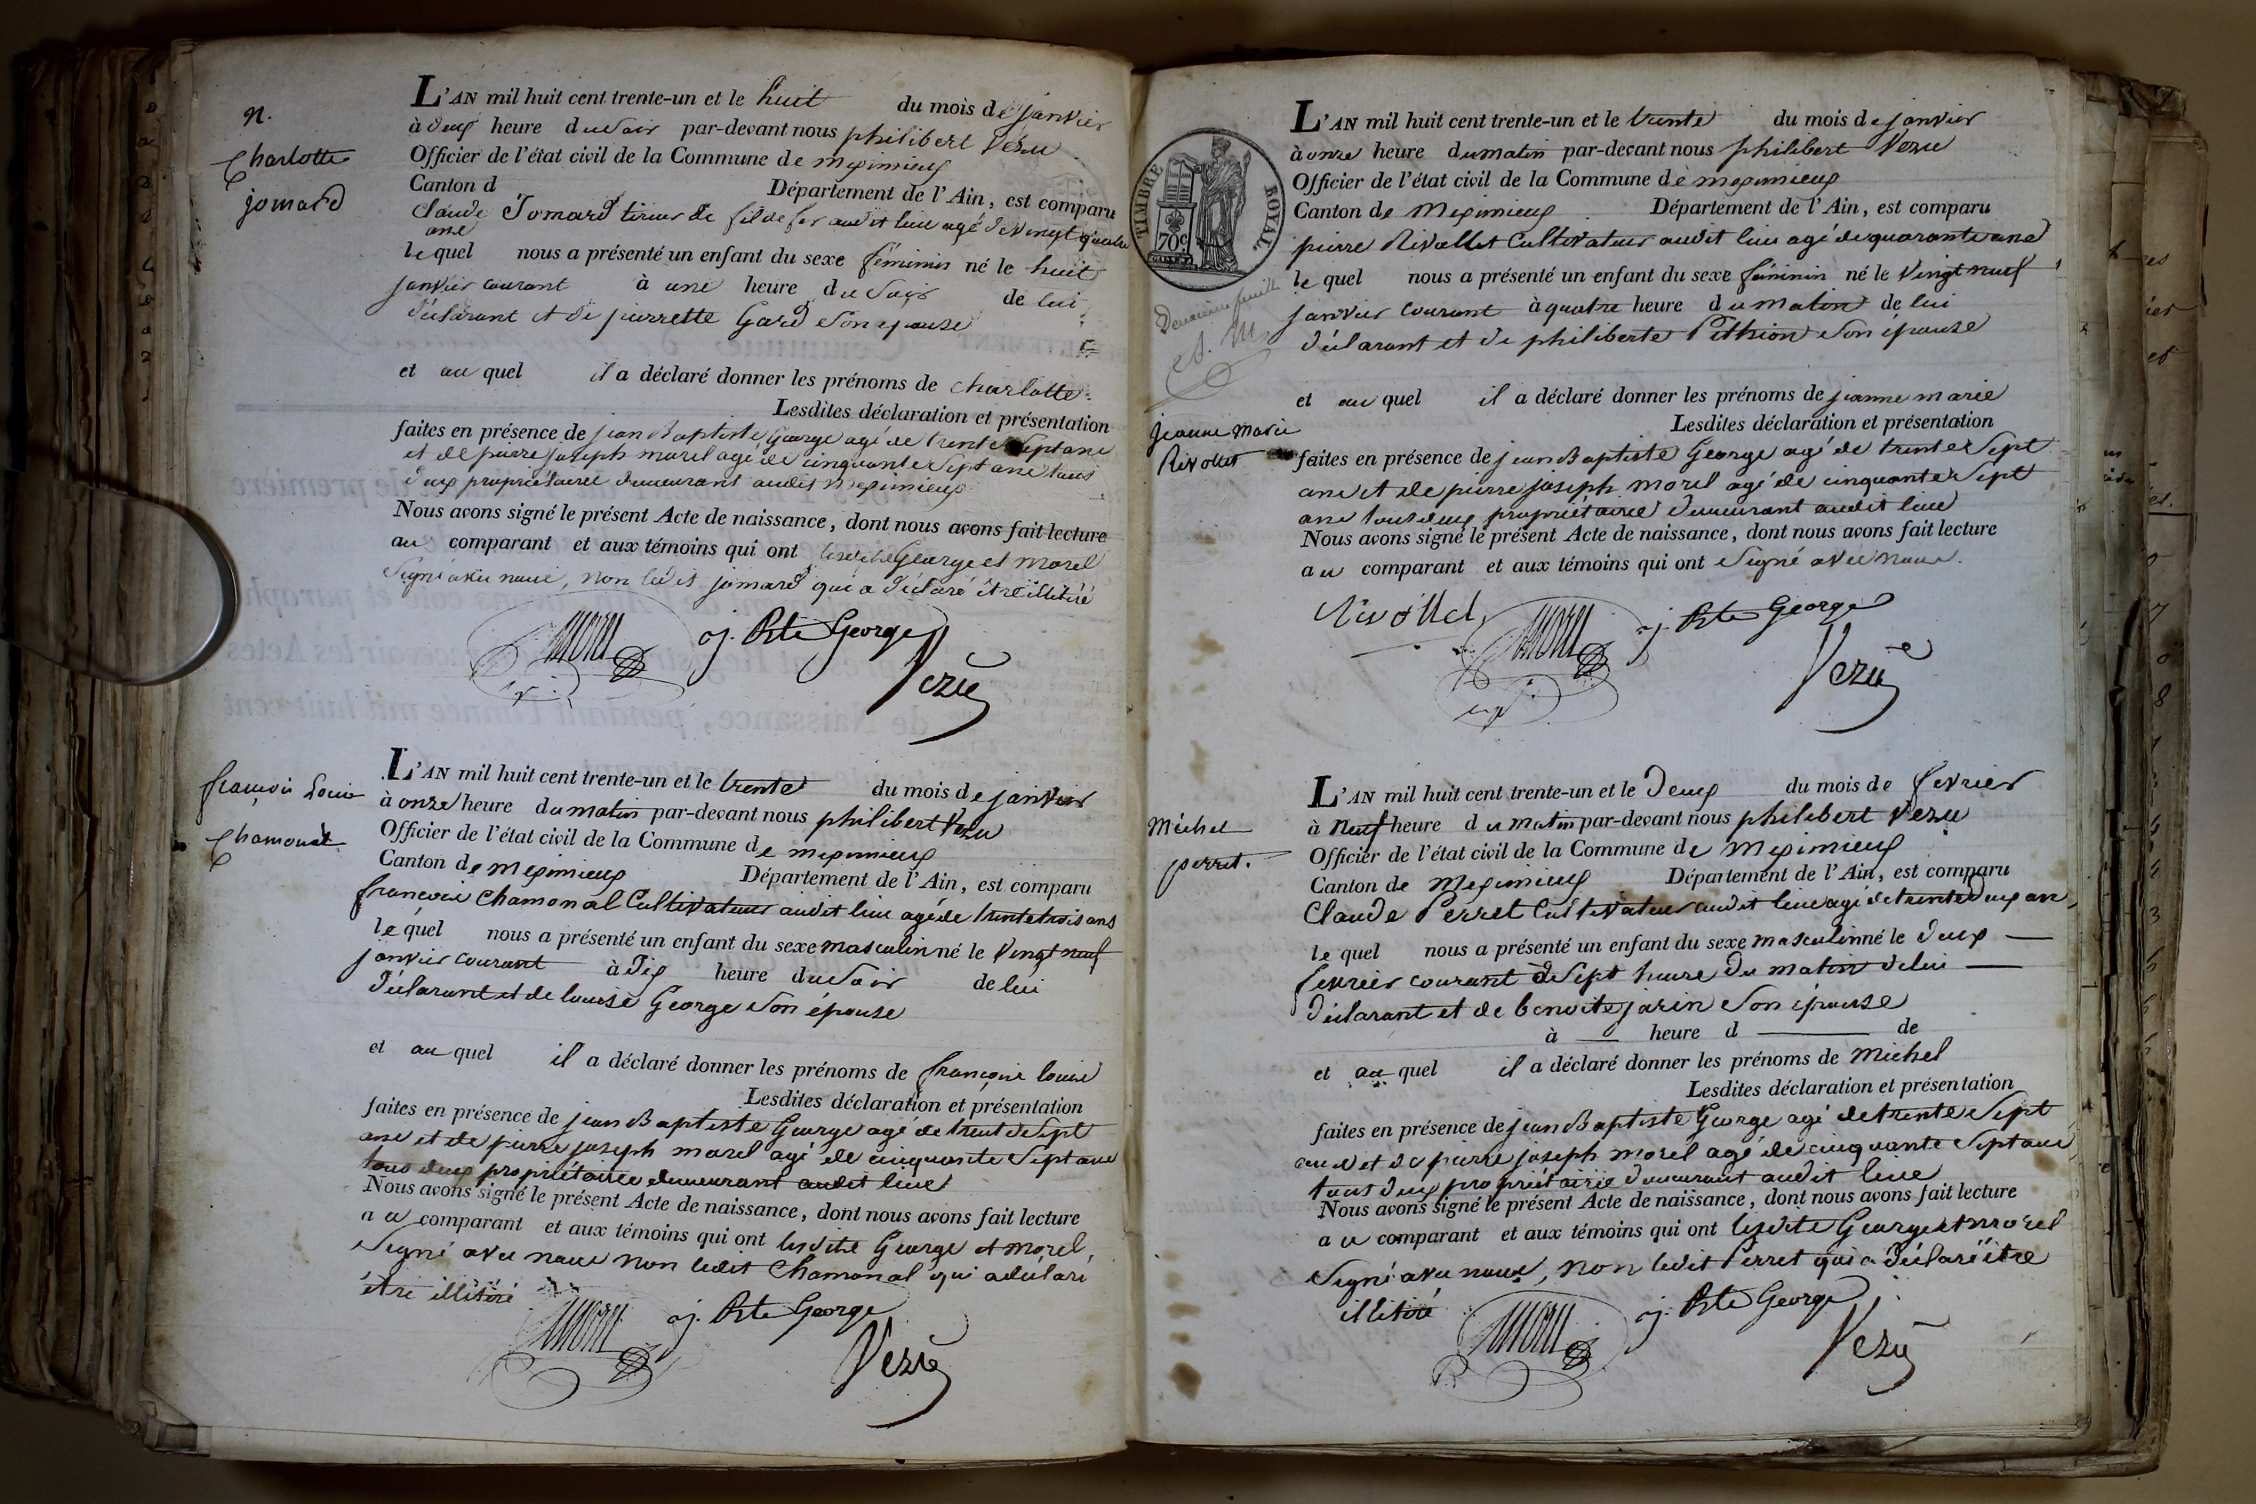 n.
Charlotte
jomard
L'AN mil huit cent trente-un et le huit du mois de janvier
à deux heure du soir par-devant nous philibert Vezu
Officier de l'état civil de la Commune de meximieux
Canton d Département de l'Ain, est comparu
Claude Jomard tireur de fil de fer audit lieu agé de vingt quatre
ans
le quel nous a présenté un enfant du sexe féminin né le huit
janvier courant à une heure du soir de lui
déclarant et de pierrette Gard son épouse
et au quel il a déclaré donner les prénoms de charlotte.
Lesdites déclaration et présentation
faites en présence de jean Baptiste George agé de trente Sept ans
et de pierre joseph morel agé de cinquante Sept ans tous
deux propriétaires demeurant audit Meximieux
Nous avons signé le présent Acte de naissance, dont nous avons fait lecture
au comparant et aux témoins qui ont lesdits George et Morel
signé avec nous, non ledit jomard qui a déclaré être illitéré
morel j. Bte George
Vezu
françois Louis
Chamonal
L'AN mil huit cent trente-un et le trente du mois de janvier
à onze heure du matin par-devant nous philibert Vezu
Officier de l'état civil de la Commune de meximieux
Canton de meximieux Département de l'Ain, est comparu
françois Chamonal Cultivateur audit lieu agé de trente trois ans
le quel nous a présenté un enfant du sexe masculin né le vingt neuf
janvier courant à dix heure du soir de lui
déclarant et de louise George son épouse
et au quel il a déclaré donner les prénoms de françois louis
Lesdites déclaration et présentation
faites en présence de jean Baptiste George agé de trente Sept
ans et de pierre joseph morel agé de cinquante Sept ans
tous deux propriétaires demeurant audit lieu
Nous avons signé le présent Acte de naissance, dont nous avons fait lecture
au comparant et aux témoins qui ont lesdits George et Morel,
signé avec nous non ledit Chamonal qui a déclaré
être illitéré
morel j. Bte George
Vezu
TIMBRE ROYAL
70c
Deuxième feuille
Jeanne Marie
Rivollet
L'AN mil huit cent trente-un et le trente du mois de janvier
à onze heure du matin par-devant nous philibert Vezu
Officier de l'état civil de la Commune de meximieux
Canton de Meximieux Département de l'Ain, est comparu
pierre Rivollet Cultivateur audit lieu agé de quarante ans
le quel nous a présenté un enfant du sexe féminin né le vingt neuf
janvier courant à quatre heure du matin de lui
déclarant et de philiberte Péthion son épouse
et au quel il a déclaré donner les prénoms de jeanne marie
Lesdites déclaration et présentation
faites en présence de jean Baptiste George agé de trente Sept
ans et de pierre joseph morel agé de cinquante Sept
ans tous deux propriétaires demeurant audit lieu
Nous avons signé le présent Acte de naissance, dont nous avons fait lecture
au comparant et aux témoins qui ont signé avec nous.
Rivollet morel j. Bte George
Vezu
Michel
perret.
L'AN mil huit cent trente-un et le deux du mois de fevrier
à neuf heure du matin par-devant nous philibert Vezu
Officier de l'état civil de la Commune de Meximieux
Canton de Meximieux Département de l'Ain, est comparu
Claude Perret Cultivateur audit lieu agé de trente deux ans,
le quel nous a présenté un enfant du sexe masculin né le deux
fevrier courant à Sept heure du matin de lui
déclarant et de benoite jarin son épouse
à heure d de
et au quel il a déclaré donner les prénoms de Michel
Lesdites déclaration et présentation
faites en présence de jean Baptiste George agé de trente Sept
ans et de pierre joseph morel agé de cinquante Sept ans
tous deux propriétaires demeurant audit lieu
Nous avons signé le présent Acte de naissance, dont nous avons fait lecture
au comparant et aux témoins qui ont lesdits George et Morel
signé avec nous, non ledit Perret qui a déclaré être
illitéré
morel j. Bte George
Vezu